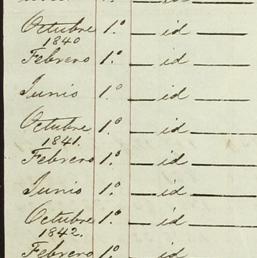 Octubre 1.º — id —
1840
Febrero 1.º — id —
Junio 1.º — id —
Octubre 1.º — id —
1841.
Febrero 1.º — id —
Junio 1.º — id —
Octubre 1.º — id —
1842.
Febrero 1.º — id —